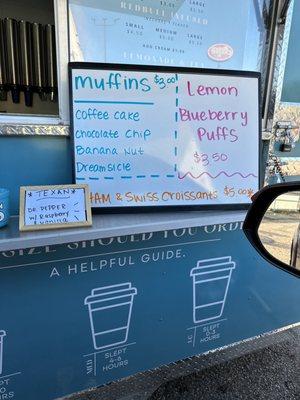 REDBULL INFUSED
SMALL MEDIUM LARGE
LEMONADE & TEA
SMALL LARGE
ADD CREAM $0.50
muffins $3.00
coffee cake
chocolate chip
Banana Nut
Dreamsicle
Lemon
Blueberry
Puffs
$3.50
HAM & SWISS CROISSANTS $5.00
TEXAN
DR. PEPPER
w/ Raspberry
vanilla
SIZE SHOULD YOU ORDER
A HELPFUL GUIDE.
MED
SLEPT
4-6
HOURS
LG
SLEPT
0-3
HOURS